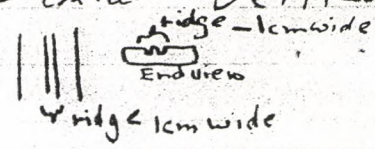 ridge - 1cm wide
End view
ridge 1cm wide